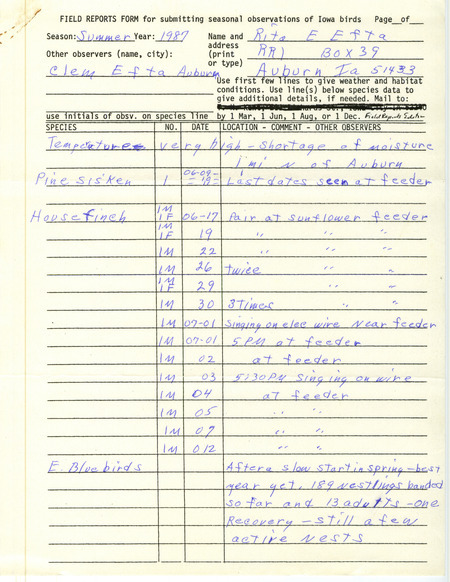 FIELD REPORTS FORM for submitting seasonal observations of Iowa birds Page__of__
Season: Summer Year: 1987 Name and Rita E Efta
address
Other observers (name, city): (print RR1 Box 39
or type)
Clem Efta Auburn Auburn Ia 51433
Use first few lines to give weather and habitat
conditions. Use line(s) below species data to
give additional details, if needed. Mail to:
use initials of obsv. on species line by 1 Mar, 1 Jun, 1 Aug, or 1 Dec. Field Reports Editor
SPECIES NO. DATE LOCATION - COMMENT - OTHER OBSERVERS
Temperatures very high - shortage of moisture
1 mi N of Auburn
Pine Sisken 1 06-09- Last dates seen at feeder
House finch 1M 1F 06-17 Pair at sunflower feeder
1M 1F 19 " " "
1M 22 " "
1M 26 twice " "
1M 1F 29 " "
1M 30 3 Times " "
1M 07-01 Singing on elec wire near feeder
1M 07-01 5 PM at feeder
1M 02 at feeder
1M 03 5:30 PM Singing on wire
1M 04 at feeder
1M 05 " "
1M 07 " "
1M 012 " "
E. Bluebirds After a slow start in spring - best
year yet. 189 nestlings banded
so far and 13 adults - one
Recovery - still a few
active nests